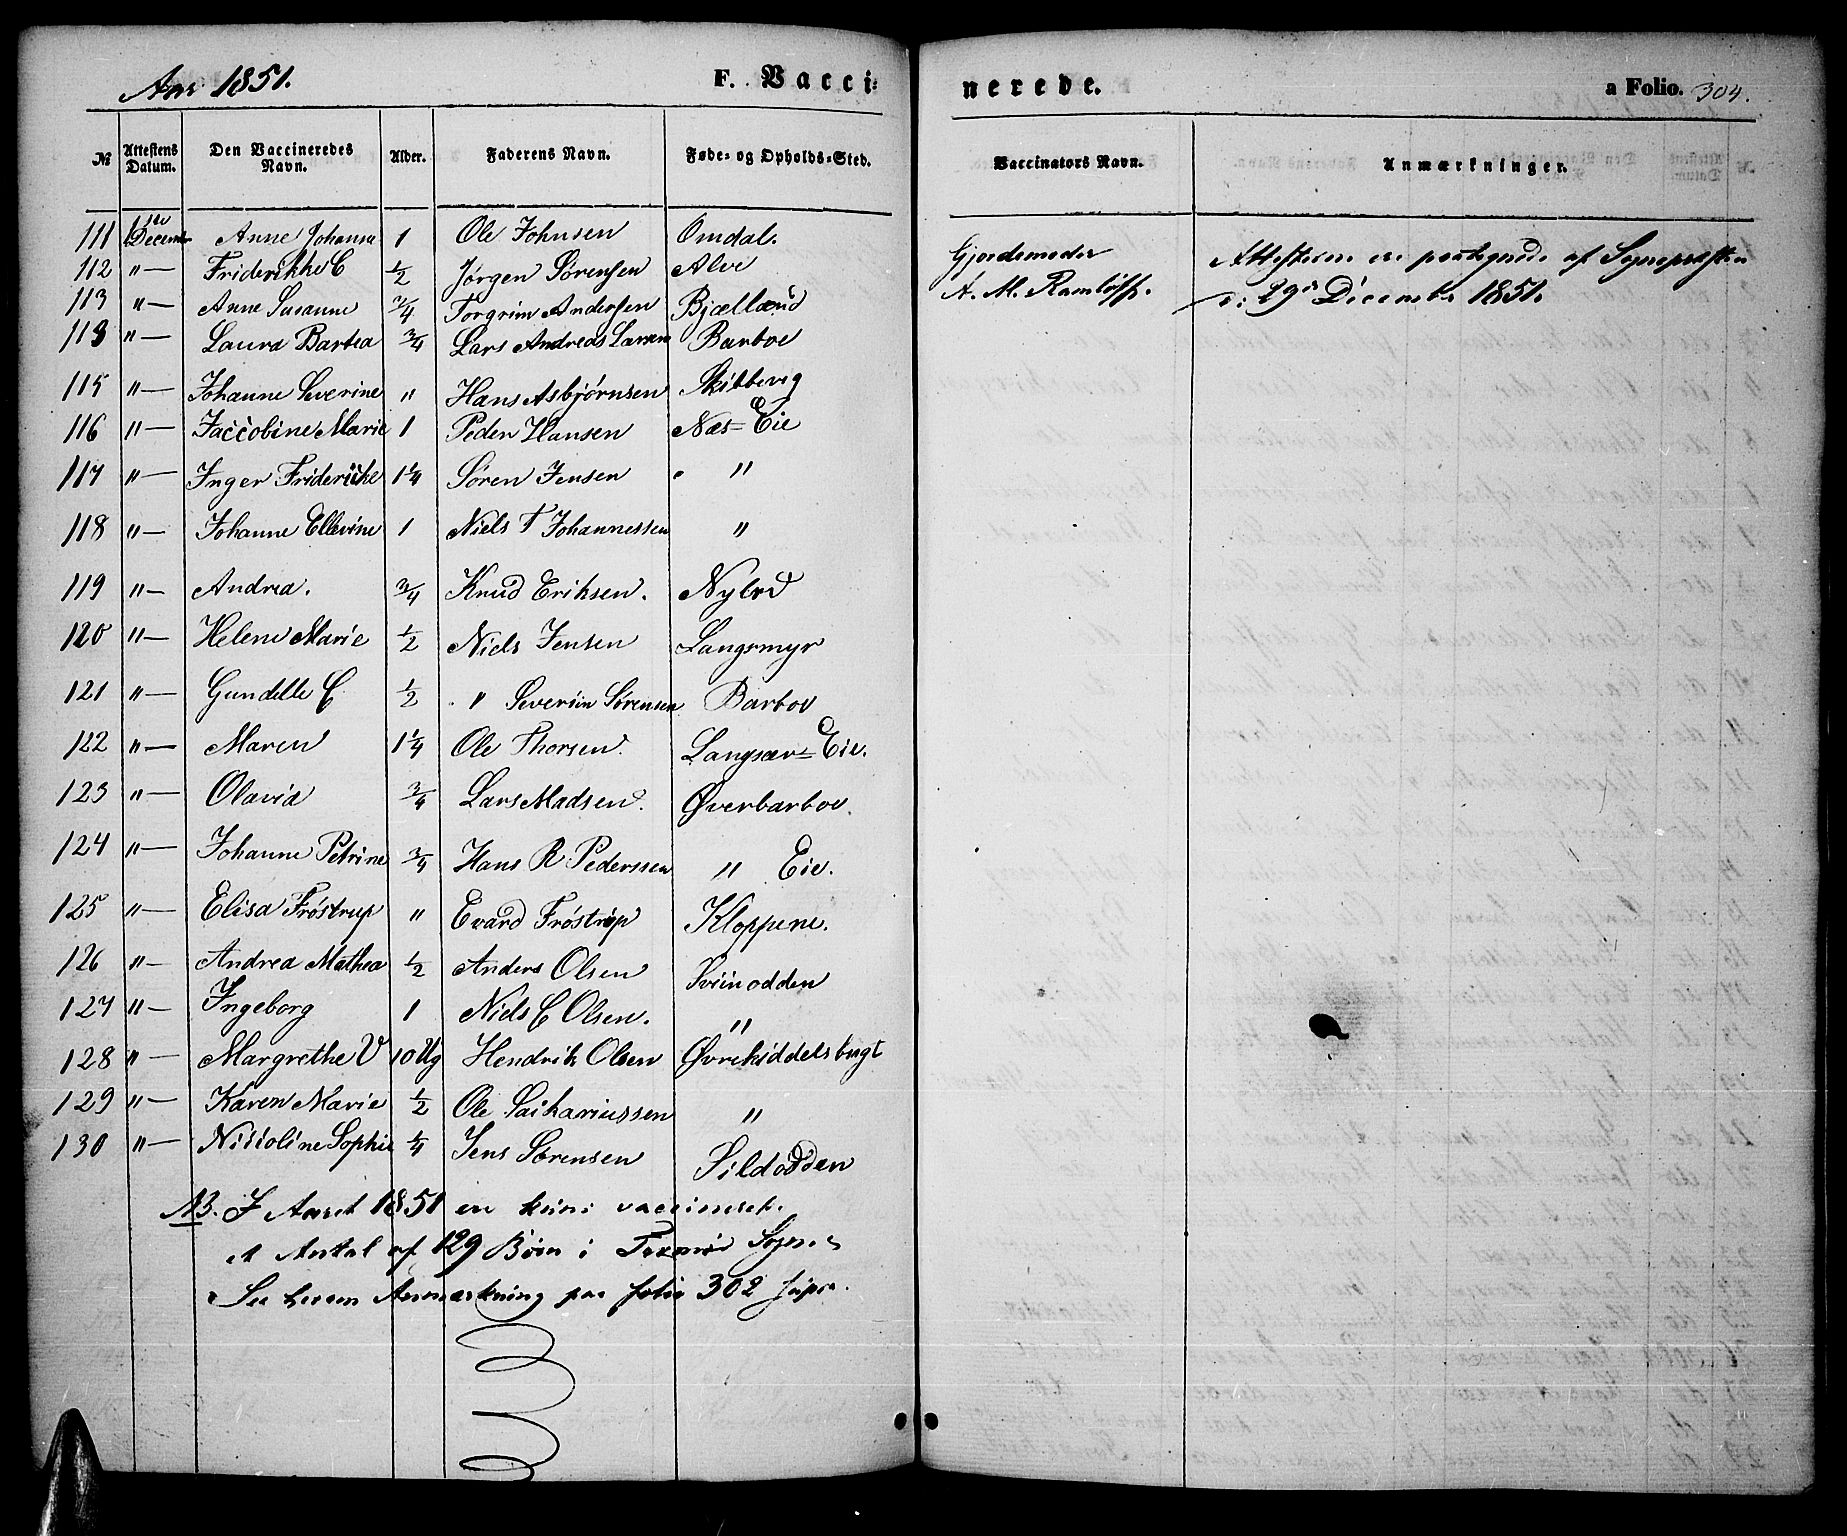 Aar 1851. F. Vacci= nerede. a Folio. 304.
№ Attestens Datum. Den Vaccineredes Navn. Alder. Faderens Navn. Føde= og Opholds=Sted. Vaccinators Navn. Anmærkninger.
111 1ste Decemr Anne Johanne 1 Ole Johnsen Omdal. Gjordemoder Attesterne ere paategnede af Sognepræsten
112 "— Friderikke C 1/2 Jørgen Sørensen Alve A. M. d: 29de December 1851.
113 "— Anne Susanne 3/4 Torgrim Andersen Bjælland
113 "— Laura Bartea 3/4 Lars Andreas Larsen Barboe
115 "— Johanne Severine " Hans Asbjørnsen Skibbevig
116 "— Jaccobine Marie 1 Peder Hansen Næs=Eie
117 "— Inger Friderikke 1 1/4 Søren Jensen "
118 "— Johanne Ellevine 1 Niels T Johannessen "
119 "— Andrea. 3/4 Knud Eriksen. Nylød
120 "— Helene Marie 1/2 Niels Jensen Langsmyr
121 "— Gundelle C 1/2 " Severin Sørensen Barboe
122 "— Maren 1 1/4 Ole Thorsen. Langsæv=Eie.
123 "— Olavia 3/4 Lars Madsen. Øverbarboe.
124 "— Johanne Petrine 3/4 Hans R Pederssen " Eie.
125 "— Elisa Frøstrup " Evard Frøstrup Kloppene.
126 "— Andrea Mathea 1/2 Anders Olsen Sviinodden
127 "— Ingeborg 1 Niels C Olsen. "
128 "— Margrethe V 10 Ug Hendrik Olsen Øvrekiddelsbugt
129 "— Karen Marie 1/2 Ole Sachariussen "
130 "— Niccoline Sophie 1/4 Jens Sørensen Sildodden
NB. I Aaret 1851 er kuns vaccineret
et Antal af 129 Børn i Tromø Sogn
See herom Anmærkning paa folio 302